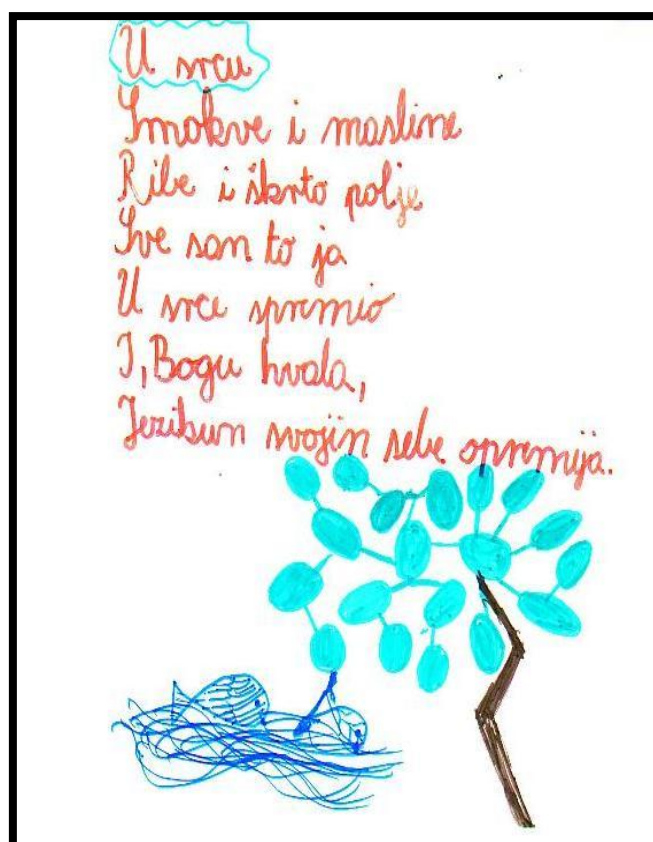 U srcu
Smokve i masline
Ribe i škrto polje
Sve san to ja
U srce spremio
I, Bogu hvala,
Jezikun svojin sebe opremija.